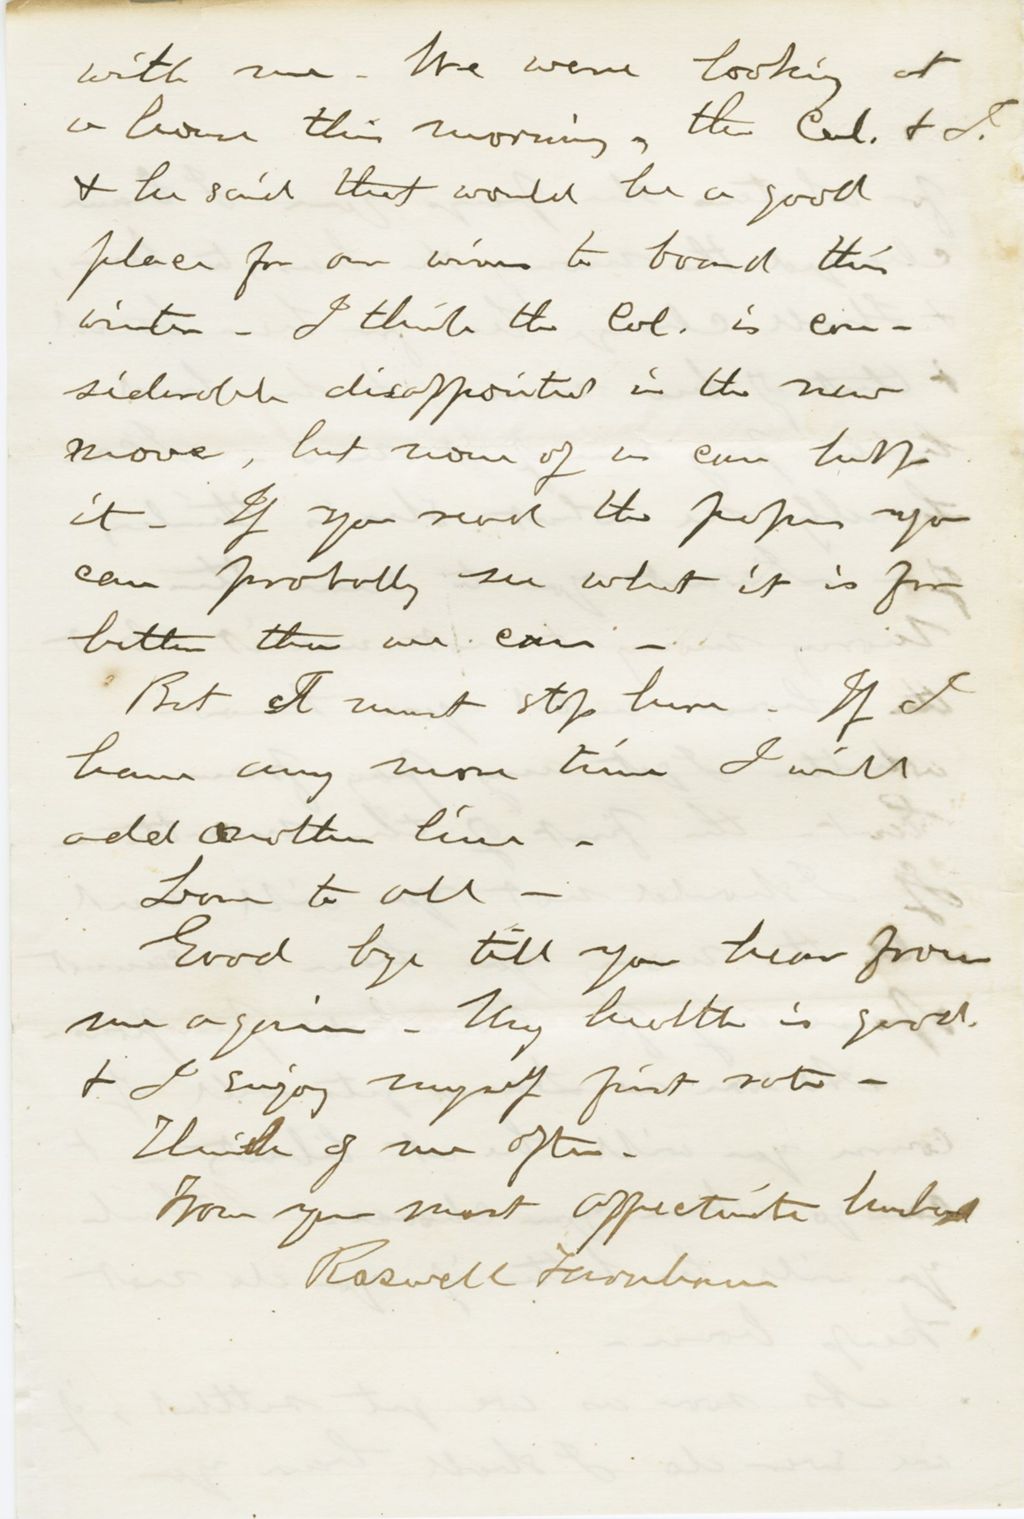 with me - We were looking at
a house this morning, the Col. & I.
& he said that would be a good
place for our wives to board this
winter - I think the Col. is con-
siderable disappointed in the new
move, but none of us can help
it - If you read the papers you
can probably see what it is for
better than we can -
But I must stop here - If I
have any more time I will
add another line -
Love to all -
Good bye till you hear from
me again - My health is good.
& I enjoy myself first rate -
Think of me often -
From your most affectinate husband
Roswell Farnham